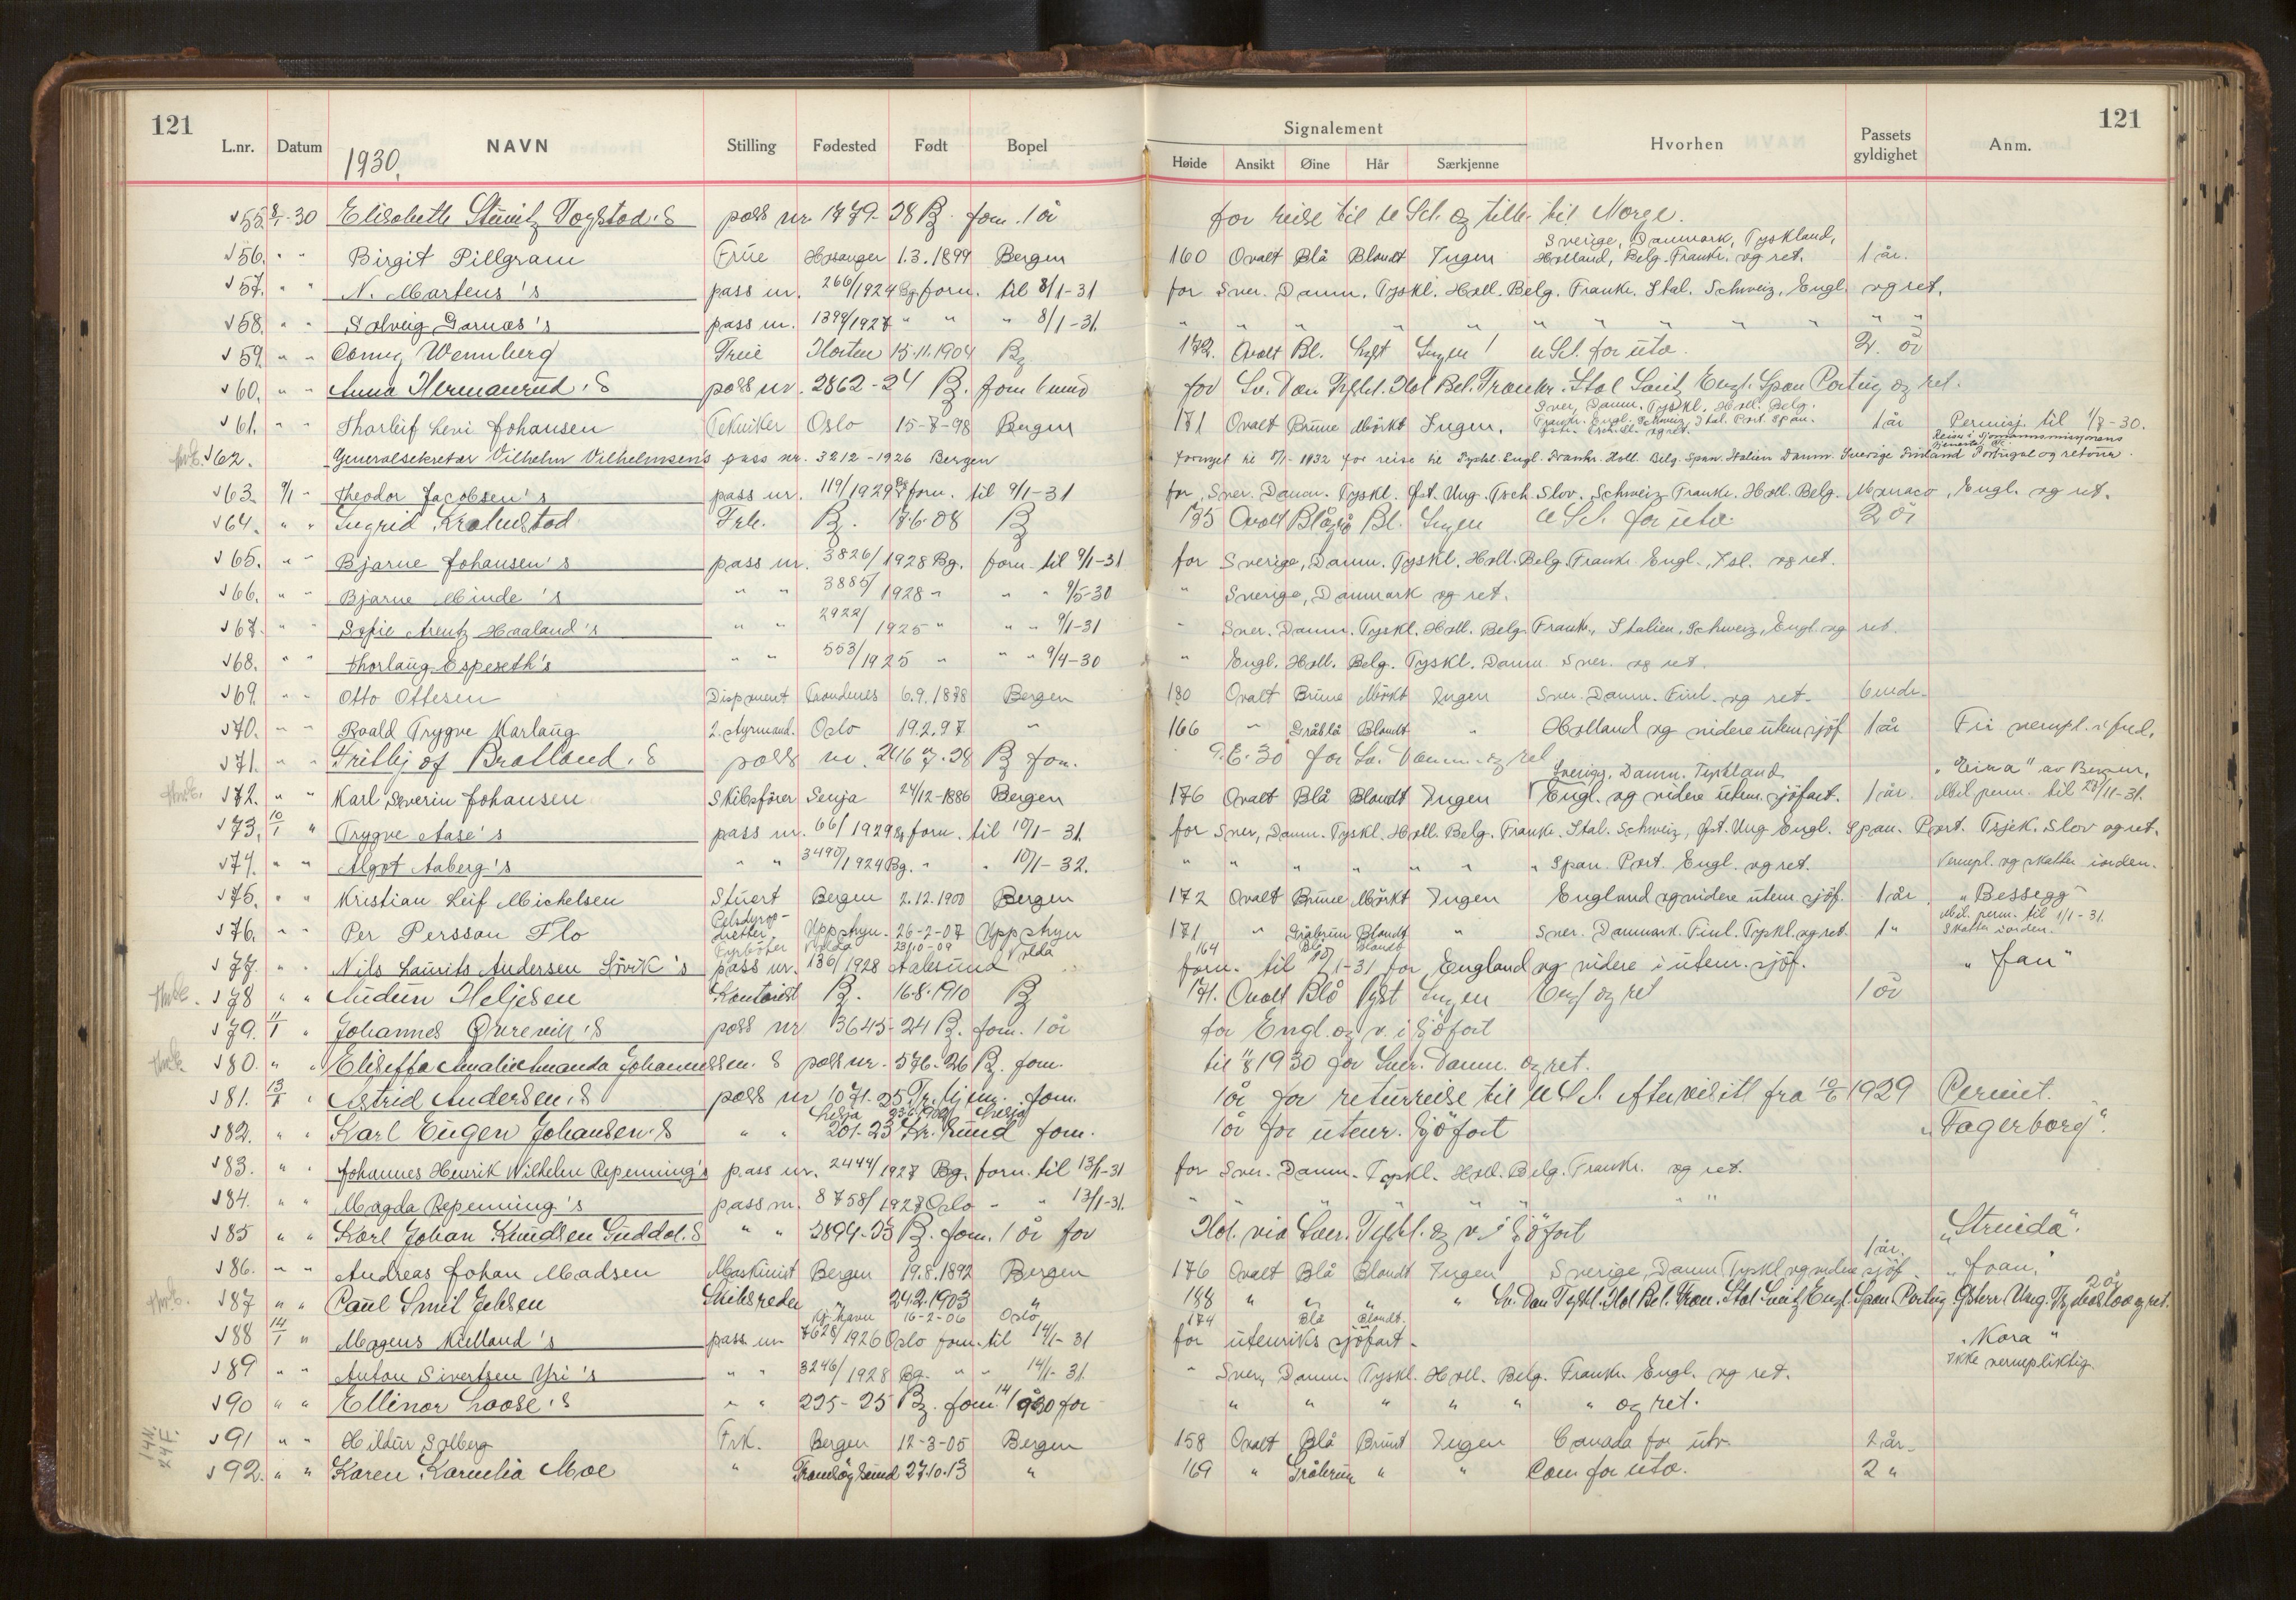 121
L.nr. Datum NAVN Stilling Fødested Født Bopel
1930.
55. 8/1-30 Elisabeth Stünitz Togstad's pass nr 1779-28 Bg. forn. 1 år
56. " " Birgit Pillgram Frue Hosanger 1.3.1899 Bergen
57. " " N. Martens's pass nr. 266/1924 Bg forn. til 8/1-31
58. " " Solveig Garnæs's pass nr. 1399/1927 " " " 8/1-31.
59. " " Wennberg Frue Horten 15.11.1904 Bg
60. " " Anna Hermanrud's pass nr. 2862-24 Bg. forn 6 mnd
61. " " Thorleif Levi Johansen Tekniker Oslo 15-8-98 Bergen
62. Generalsekretær Vilhelm Vilhelmsen's pass nr. 3212-1926 Bergen
63. 9/1 - Theodor Jacobsen's pass nr. 119/1929 Bg forn. til 9/1-31
64. " " Ingrid Frk. Bg. 17.6.08 Bg
65. " " Bjarne Johansen's pass nr. 3826/1928 Bg. forn til 9/1-31
66. " " Bjarne Minde's " " 3885/1928 " " " 9/5-30
67. " " Sofie Arentz Haaland's " " 2922/1925 " " " 9/1-31
68. " " Thorlaug Espeseth's " " 553/1925 " " " 9/4-30
69. " " Otto Ottesen Disponent Trondenes 6.9.1878 Bergen
70. " " Roald Trygve Marlaug 2. styrmand. Oslo 19.2.97 "
71. " " Frithj of Bratland's pass nr. 28 Bg forn.
72. " " Karl Severin Johansen Skibsfører Senja 24/12-1886 Bergen
73. 10/1 " Trygve Aase's pass nr. 66/1929 Bg forn. til 10/1-31.
74. " " Algot Aaberg's " " 3490/1924 Bg. " " 10/1-32.
75. " " Kristian Leif Michelsen Stuert Bergen 2.12.1900 Bergen
76. " " Per Persson Flo Pelsdyrop- dretter Oppstryn 26-2-07 Oppstryn
Fyrbøter Volda 23/10-09 Volda
77. " " Nils Laurits Andersen Løvik's pass nr. 136/1928 Aalesund
78 " " Audun Heljesen Kontorist Bg. 16.8.1910 Bg
79. 11/1 " Johannes Øvrevik's pass nr 3645-24 Bg. forn. 1 år
80. " " Elisef Amalie Amanda Johannessen's pass nr. 576-26 Bg. forn.
81. 13/1 " Astrid Andersen's pass nr 1071-25 Tr.hjem. forn.
Lesja Lesja
82. " " Karl Eugen Johansen's " " 201-23 Kr.sund forn.
83. " " Johannes Henrik Wilhelm Repenning's pass nr. 2444/1927 Bg. forn. til 13/1-31
84. " " Magda Repenning's pass nr. 8758/1927 Oslo " " 13/1-31.
85 " " Karl Johan Knudsen Guddal's " " 2894-23 Bg. forn. 1 år for
86. " " Andreas Johan Madsen Maskinist Bergen 19.8.1892 Bergen
87 " " Paul Smit Jebsen Skibsreder " 24.2.1903 "
Kj.havn 16-2-06 Oslo
88 14/1 " Mogens Kielland's pass nr 7628/1926 Oslo forn. til 14/1-31
89 " " Anton Sivertsen Yri's " " 3246/1928 Bg. " " 14/1-31.
90 " " Ellinor Loose's " " 225-25 Bg. forn. for
91 " " Hildur Solberg Frk. Bergen 12-3-05 Bergen
92. " " Karen Kornelia Moe " Tromsøysund 27.10.13 "
14 N.
24 F.
121
Signalement
Høide Ansikt Øine Hår Særkjenne Hvorhen Passets gyldighet Anm.
for reise til U St. og tilb. til Norge.
Sverige, Danmark, Tyskland,
160 Ovalt Blå Blondt Ingen Holland, Belg. Frankr. og ret. 1 år.
for Sver. Danm. Tyskl. Holl. Belg. Frankr. Ital. Schweiz, Engl. og ret.
" " " " " " " " " " "
172. Ovalt Bl. Lyst Ingen U St. for utv. 2 år
for Sv. Dan Tyskl. Hol Bel. Frankr. Ital Sveitz Engl. Span Portug og ret.
Sver, Danm. Tyskl. Holl. Belg.
171 Ovalt Brune Mörkt Ingen. Frankr. Engl. Schweiz, Ital. Port. Span. 1 år Permisj. til 1/7-30.
fornyet til 8/1-1932 for reise til Tyskl. Engl. Frankr. Holl. Belg. Span. Italien Danm. Sverige Finland Portugal og retour.
for Sver. Danm. Tyskl. Øst. Ung. Tsch. Slov. Schweiz Frankr. Holl. Belg. Monaco, Engl. og ret.
175 Ovalt Blågrå Bl. Ingen U St. for utv. 2 år
for Sverige, Danm. Tyskl. Holl. Belg. Frankr. Engl., Isl. og ret.
" Sverige, Danmark og ret.
" Sver. Danm. Tyskl. Holl. Belg Frankr., Italien, Schweiz, Engl. og ret.
" Engl. Holl. Belg. Tyskl. Danm Sver. og ret.
180 Ovalt Brune Mörkt Ingen Sver. Danm. Finl. og ret. 6 mdr.
166 " Gråblå Blondt " Holland og videre uten. sjöf 1 år Fri vernpl. i fred.
30 for Sv. Danm. og ret
Sverige, Danm. Tyskland "Eina" av Bergen,
176 Ovalt Blå Blondt Ingen Engl. og videre utenr. sjöfart. 1 år. Mil. perm. til 28/11-31.
for Sver, Danm. Tyskl. Holl. Belg. Frankr. Ital. Schweiz, Øst. Ung Engl. Span. Port. Tsjek. Slov og ret.
" " " " " " " Span. Port. Engl. og ret. Vernepl. og skatter iorden.
172 Ovalt Brune Mörkt Ingen England og videre utenr. sjöf. 1 år. "Bessegg"
Mil. perm. til 1/1-31.
171 " Gråbrun Blondt " Sver. Danmark. Finl. Tyskl. og ret 1 " Skatter iorden.
164 Blå Blondt
forn. til 10/1-31 for England og videre i utenr. sjöf. "Jan"
171. Ovalt Blå Lyst Ingen Engl og ret 1 år
for Engl. og v. i Sjöfart
til 1930 for Sver. Danm. og ret.
1 år for returreise til U St. efter visitt fra 1929 Permit.
1 år for utenr. Sjöfart "Fagerborg".
for Sver. Danm. Tyskl. Holl. Belg. Frankr. og ret.
" " " " " "
Hol. via Sver. Tyskl. og v. i Sjöfart "Strinda".
1 år.
176 Ovalt Blå Blondt Ingen Sverige, Danm Tyskl og videre sjöf. "Joan"
2 år
188 " " " " Sv. Dan Tyskl. Hol Bel. Fran. Ital Sveitz Engl. Span Portug Østerr. Ung. og ret.
174 Blå Blondt.
for utenriks sjöfart. "Kora"
ikke vernepliktig.
" Sver, Danm. Tyskl. Holl. Belg. Frankr. Engl. og ret.
" " " " " " og ret.
158 Ovalt Blå Brunt Ingen Canada for utv. 2 år.
169 " Gråbrun " " Can for utv. 2 "